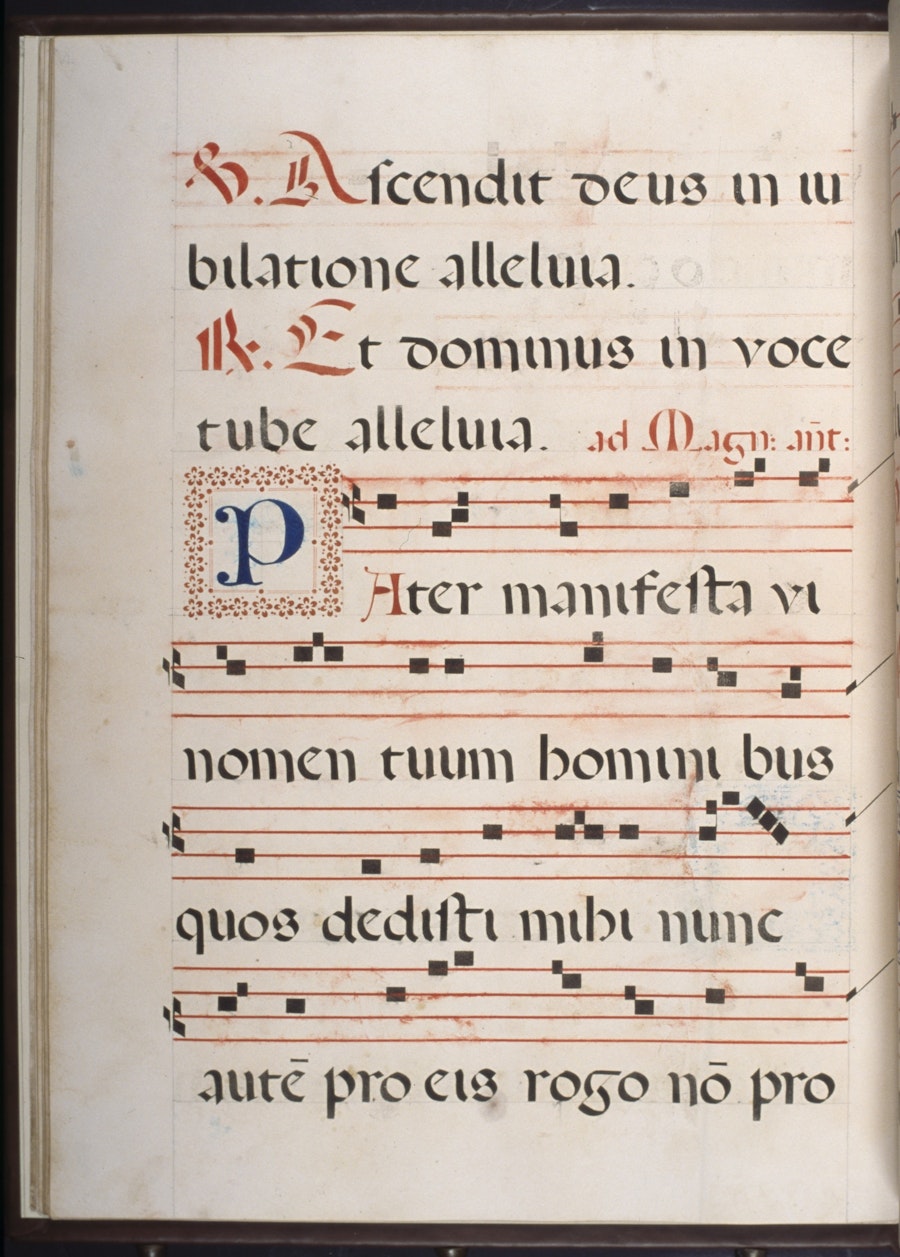 ℣. Ascendit deus in iu
bilatione alleluia.
℟. Et dominus in voce
tube alleluia. ad Magn: añt:
PAter manifesta vi
nomen tuum homini bus
quos dedisti mihi nunc
autē pro eis rogo nō pro